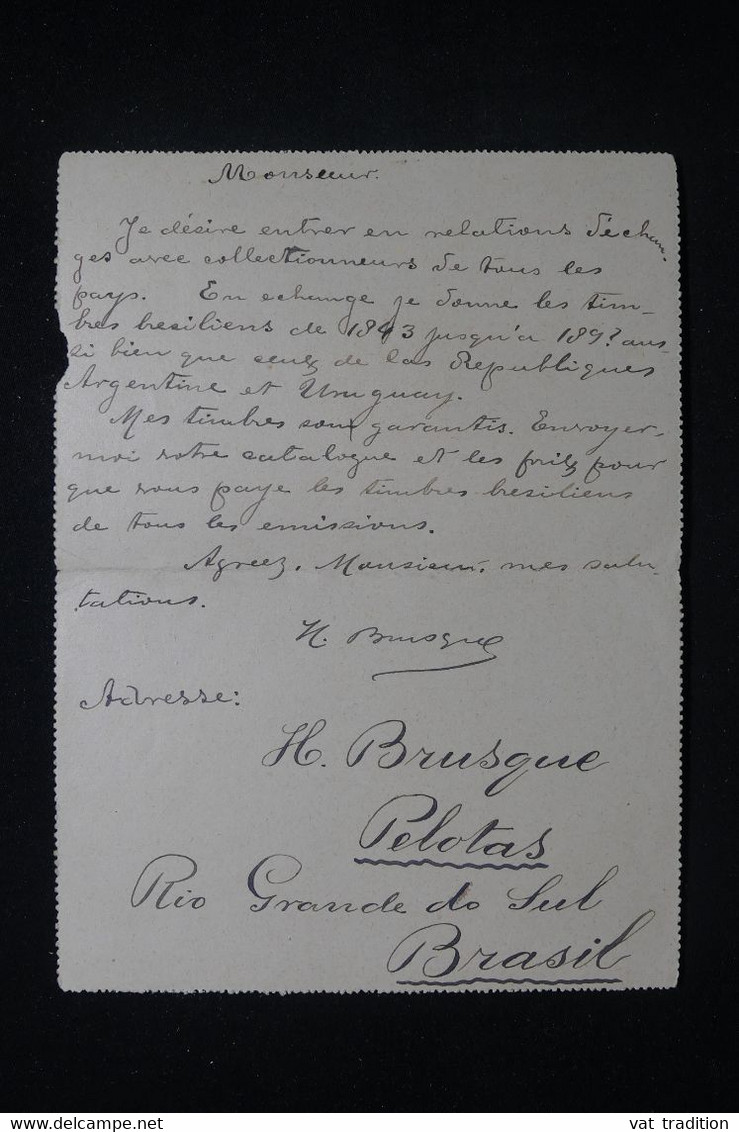 Monsieur.
Je désire entrer en relations d'échan-
ges avec collectionneurs de tous les
pays. En echange je donne les tim-
bres besiliens de 1843 jusqu'a 189? aus-
si bien que ceuz de las Republiques
Argentine et Uruguay.
Mes timbres son garantis. Envoyer-
moi votre catalogue et les priz pour
que vous paye les timbres besiliens
de tous les emissions.
Agreez, Monsieur, mes salu-
tations.
H. Brusque
Adresse:
H. Brusque
Pelotas
Rio Grande do Sul
Brasil
delcampe.net
vat tradition